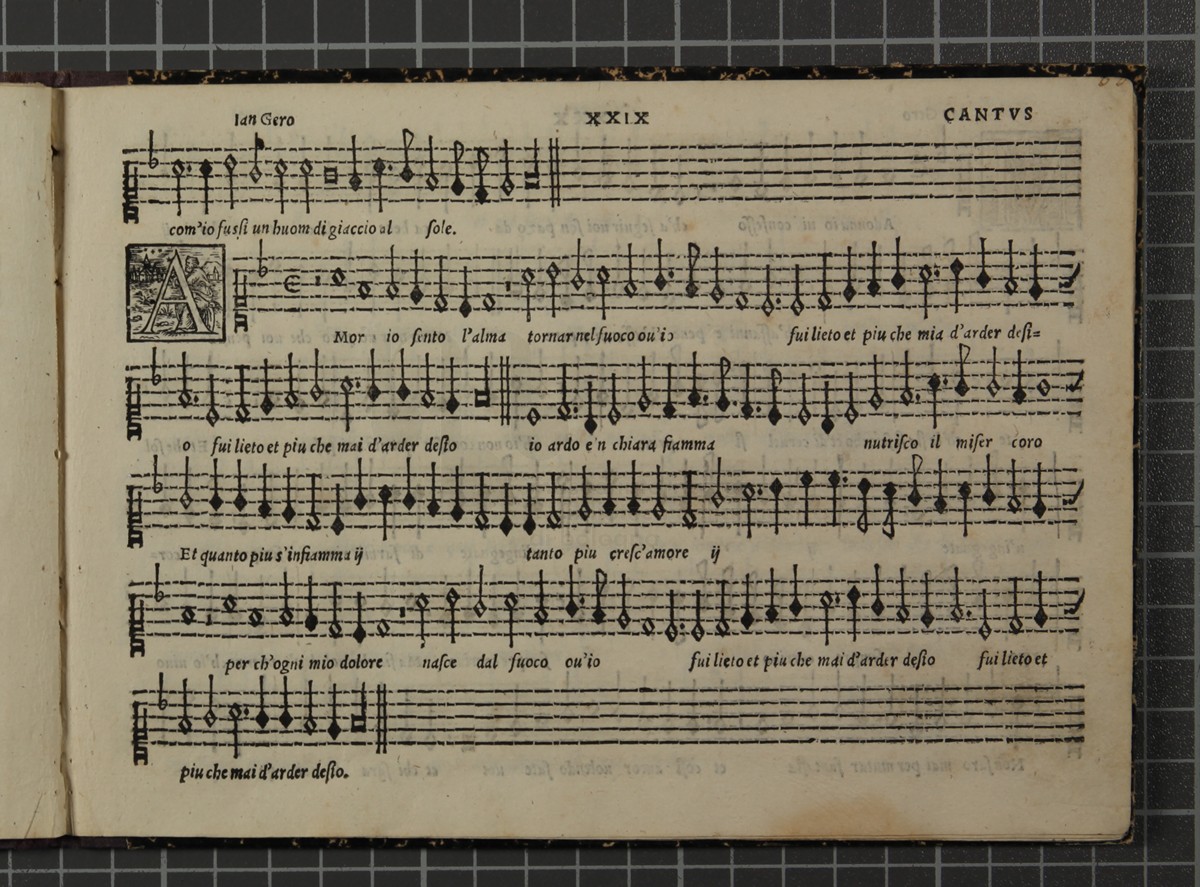 Ian Gero XXIX CANTVS
com'io fussi un huom di giaccio al sole.
A
Mor io sento l'alma tornar nel fuoco ou'io fui lieto et piu che mia d'arder desi=
o fui lieto et piu che mai d'arder desio io ardo e'n chiara fiamma nutrisco il miser coro
Et quanto piu s'infiamma ij tanto piu cresc'amore ij
per ch'ogni mio dolore nasce dal fuoco ou'io fui lieto et piu che mai d'arder desio fui lieto et
piu che mai d'arder desio.